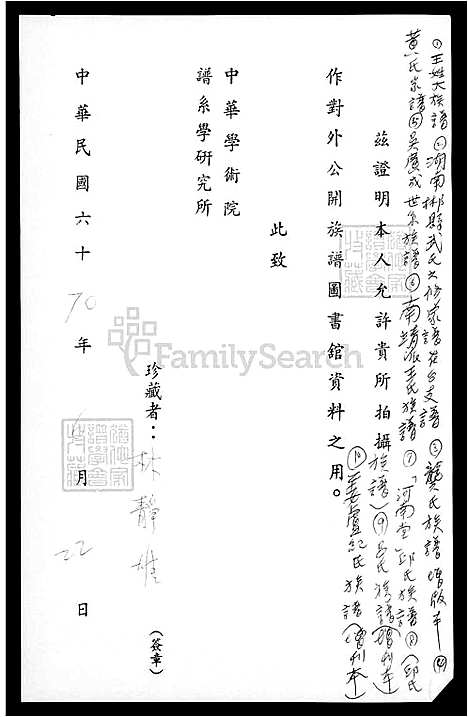 ①王姓大族譜②湖南郴縣武氏六修家譜在台支譜③龔氏族譜增版本④
黃氏宗譜⑤吳廣成世系族譜⑥南靖派王氏族譜⑦「河南堂」邱氏族譜⑧(邱氏
茲證明本人允許貴所拍攝族譜)⑨呂氏族譜(增刊本)
⑩姜盧紀氏族譜(增刊本)
作對外公開族譜圖書舘資料之用。
此致
中華學術院
譜系學研究所
珍藏者：林靜雄(簽章)
中華民國六十70年6月22日
FamilySearch